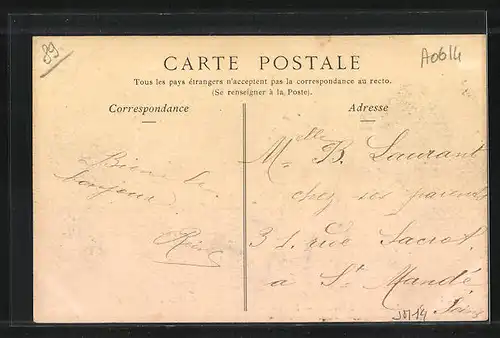 89
A0614
CARTE POSTALE
Tous les pays étrangers n'acceptent pas la correspondance au recto.
(Se renseigner à la Poste).
Correspondance
Adresse
bonjour
Melle B. Laurant
chez ses parents
rue Sacrot
a St Mandé